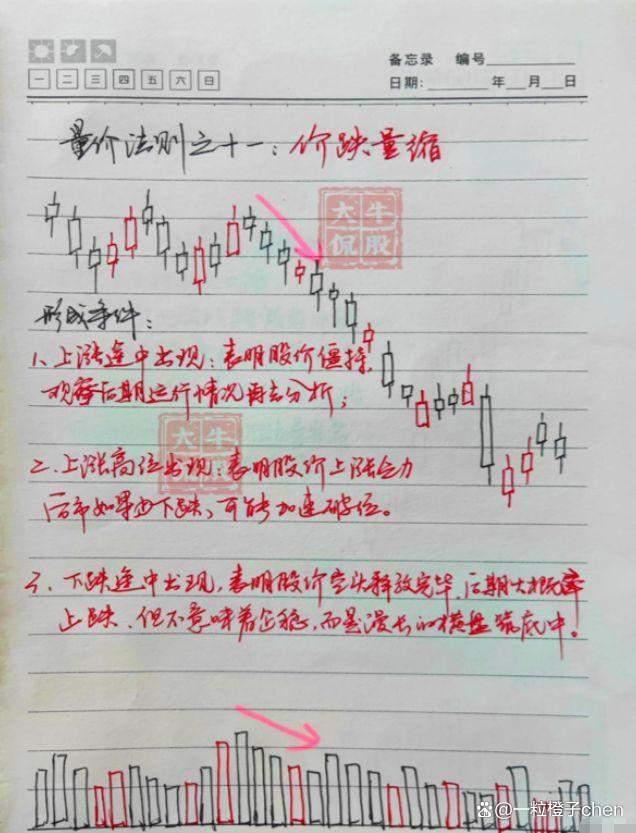 备忘录 编号
一 二 三 四 五 六 日
日期: 年 月 日
量价法则之十一：价跌量缩
大牛
侃股
形成条件：
1、上涨途中出现：表明股价僵持，
观察后期运行情况再去分析；
大牛
侃股
2、上涨高位出现：表明股价上涨乏力
后市如果由下跌、可能加速破位。
3、下跌途中出现，表明股价空头释放完毕，后期大概率
止跌，但不意味着企稳，而是漫长的横盘筑底中！
@一粒橙子chen